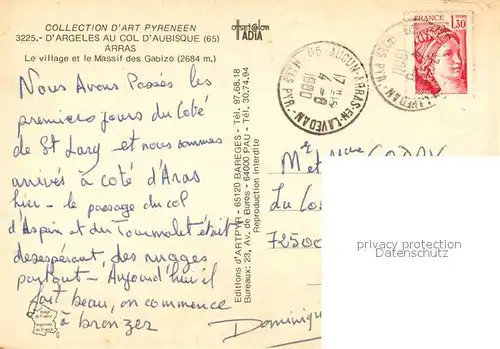 COLLECTION D'ART PYRENEEN
3225.- D'ARGELES AU COL D'AUBISQUE (65)
ARRAS
Le village et le Massif des Gabizo (2684 m.)
Nous Avons Passés les
premiers jours du Coté
de St Lary - et nous sommes
arrivés à coté d'Aras
hier - le paysage du col
d'Aspin et du Tourmalet était
desespérant, des nuages
partout - Aujourd'hui il
fait beau, on commence
à bronzer
Dominique
Editions d'ARTPYR - 65120 BAREGES - Tél. 97.68.18
Bureaux: 23, Av. de Buros - 64000 PAU - Tél. 30.74.94
Reproduction interdite
IADIA
65-AUCUN-ARRAS-EN-LAVEDAN
HTES PYR.
17 H
4-8
1980
FRANCE 1,30
Mr et Mme
72500
privacy protection
Datenschutz